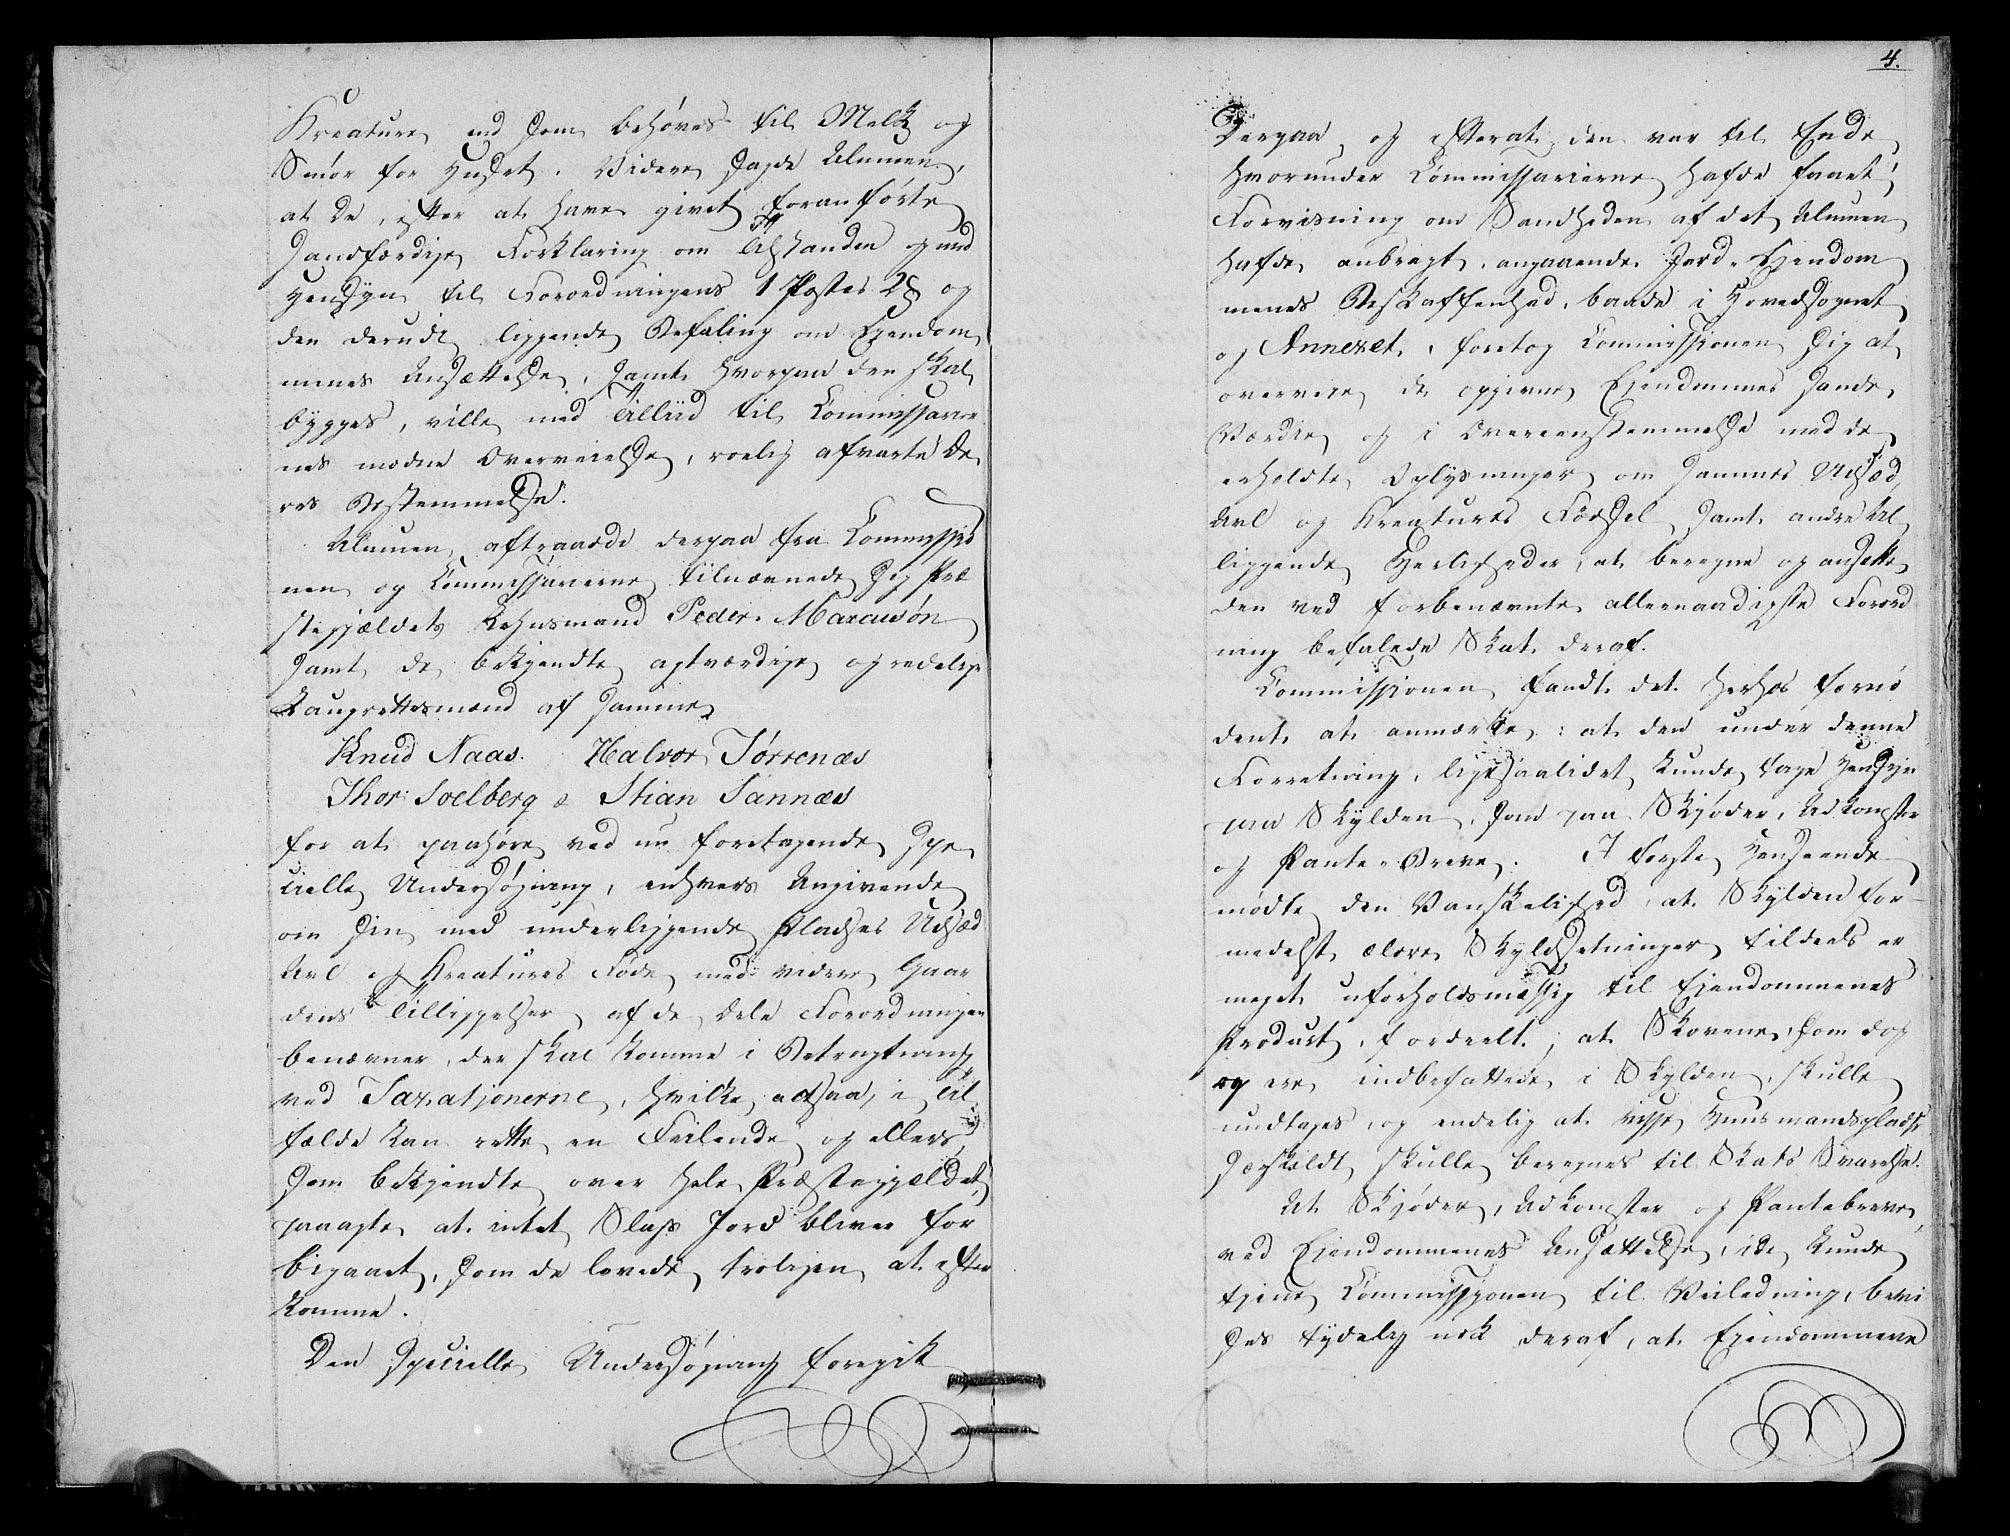 Kreature, end som behøves til Melk og
Smør for Huset. Videre sagde Almuen,
at de, efter at have givet foranførte
sandfærdige Forklaring om Tilstanden og med
Hensyn til Forordningens 1 Postes 2§ og
den derudi liggende Befaling om Ejendom,
menes Ansættelse, samt hvorpaa den skal
bygges, ville med Tilliid til Commissarier
nes modne Overveielse, roelig afvarte De,
res Bestemmelse.
Almuen aftraadde derpaa fra Commissjo
nen og Commissarierne tilnævnede sig Præ
stegjældets Lehnsmand Peder Marcusøn
samt de bekjendte agtværdige og redelige
Laugrettesmænd af samme
Knud Naas. Halvor Tørrenæs
Thor Soelberg & Stian Sannæs
for at paahøre ved nu foretagende spe,
cielle Undersøgning, enhvers Angivende
om sin med underliggende Pladses Udsæd
Avl og Kreatures Føde, med videre Gaar
dens Tilliggelser, af de Dele Forordningen
benævner, der skal komme i Betragtning
ved Taxationerne, hvilke altsaa, i Til,
fælde kan rette en Feilende, og ellers,
som bekjendte over hele Præstegjældet,
paaagte, at intet Slags Jord bliver for
bigaaet, som de lovede troligen at efter
komme.
Den specielle Undersøgning foregik
4.
Derpaa, og efterat den var til Ende,
hvorunder Commissarierne hafde faaet
Forvisning om Sandheden af det Almuen
hafde anbragt, angaaende Jord-Ejendom
menes Beskaffenhed, baade i Hovedsognet
og Annexet, foretog Commissionen sig at
overveie de opgivne Ejendommes sande
Værdie, og i Overeenstemmelse med de
erholdte Oplysninger om sammes Udsæd,
Avl og Kreatures Fødsel, samt andre til,
liggende Herligheder, at beregne og ansette
den ved forbenævnte allernaadigste Forord
ning befalede Skat deraf.
Commissjonen fandt det herhos fornø
dent at anmærke: at den under denne
Forretning, ligesaalidet kunde tage Hensyn
paa Skylden, som paa Skjøder, Adkomster
og Pante-Breve. I første Henseende
mødte den Vanskelighed, at Skylden for-
medelst ældre Skyldsetninger tildeels er
meget uforholdsmæssig til Ejendommenes
Product, fordeelt; at Skovene, som dog
og ere indbefattede i Skylden, skulle
undtages, og endelig at visse Huusmandspladse
særskildt skulle beregnes til Skats Svarelse.
At Skjøder, Adkomster og Pantebreve,
ved Ejendommenes Ansættelse, ikke kunde
tjene Commissjonen til Veiledning, bevi
ses tydelig nok deraf, at Ejendommene